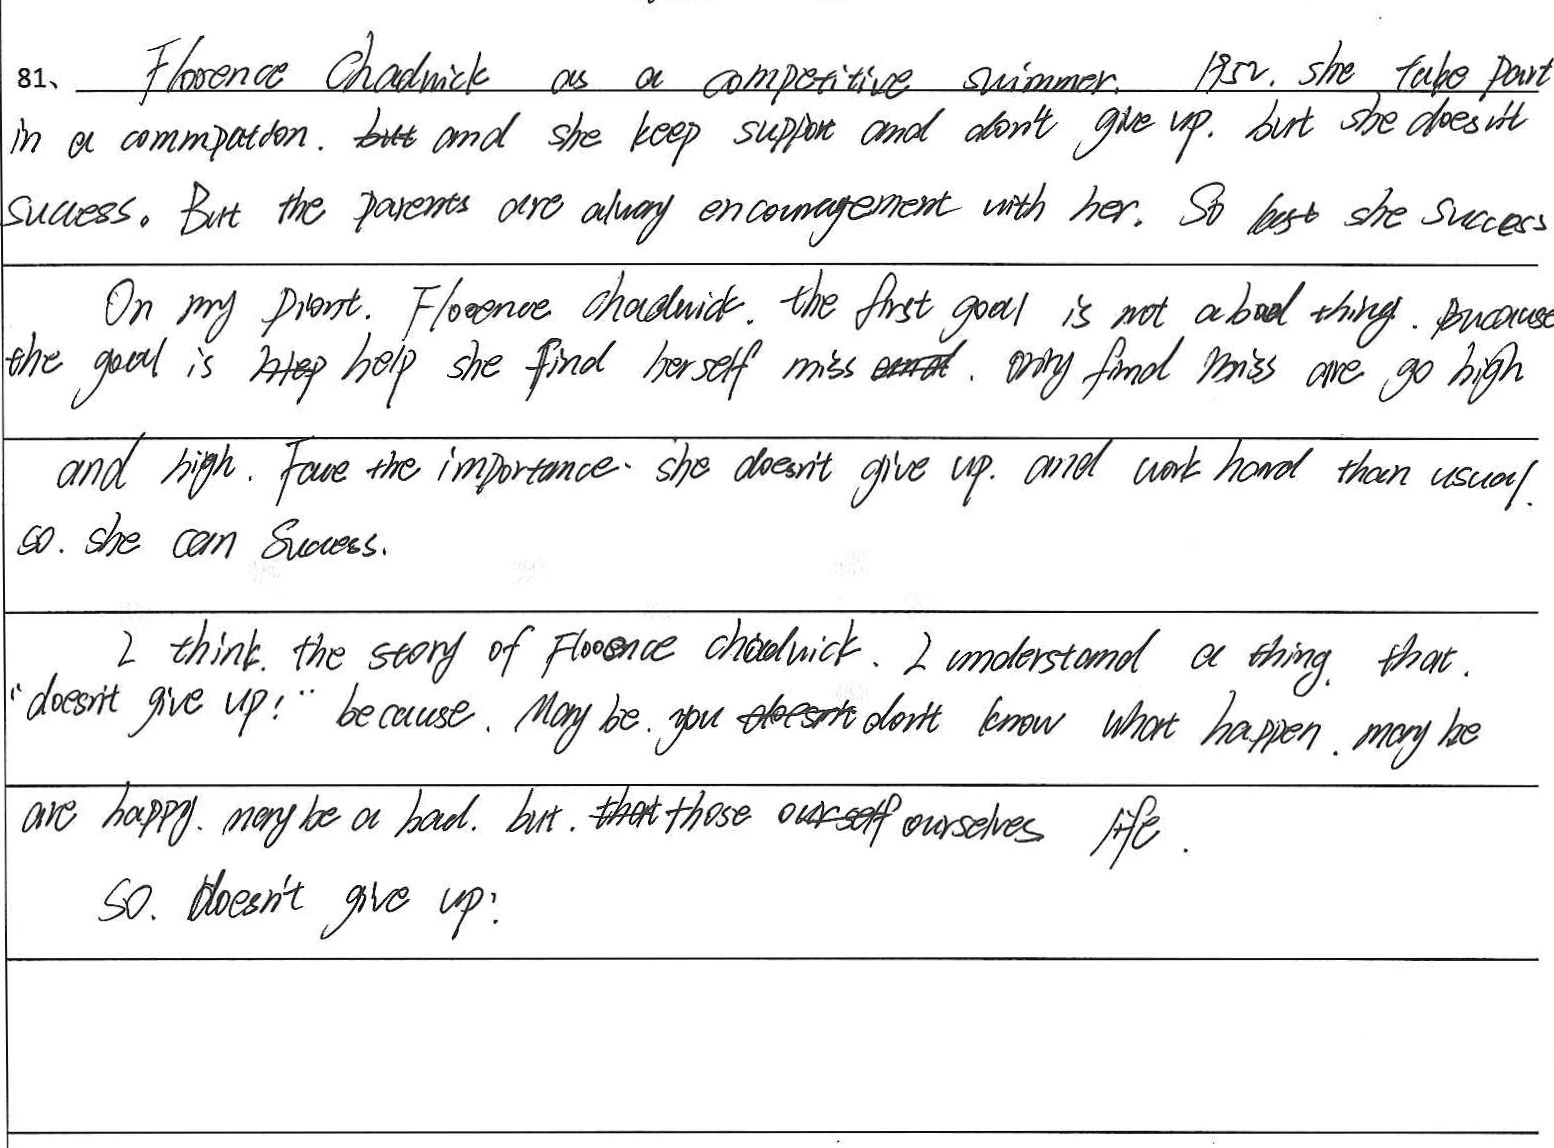 81、 Florence Chadwick as a competitive swimmer. 1952. she take part
in a commpation. but and she keep support and don't give up. but she does it
success. But the parents are alway encouragement with her. So last she success
On my piont. Florence chadwick. the first goal is not a bad thing. Bucause
the goal is help she find herself miss . only find miss are go high
and high. Fave the importance. she doesn't give up. and work hard than usual.
so. she can Success.
I think. the story of Florence chadwick. I understand a thing. that.
"doesn't give up!" because. May be. you doesn't don't know what happen. may be
are happy. may be a bad. but. that those ourself ourselves life.
So. Doesn't give up!